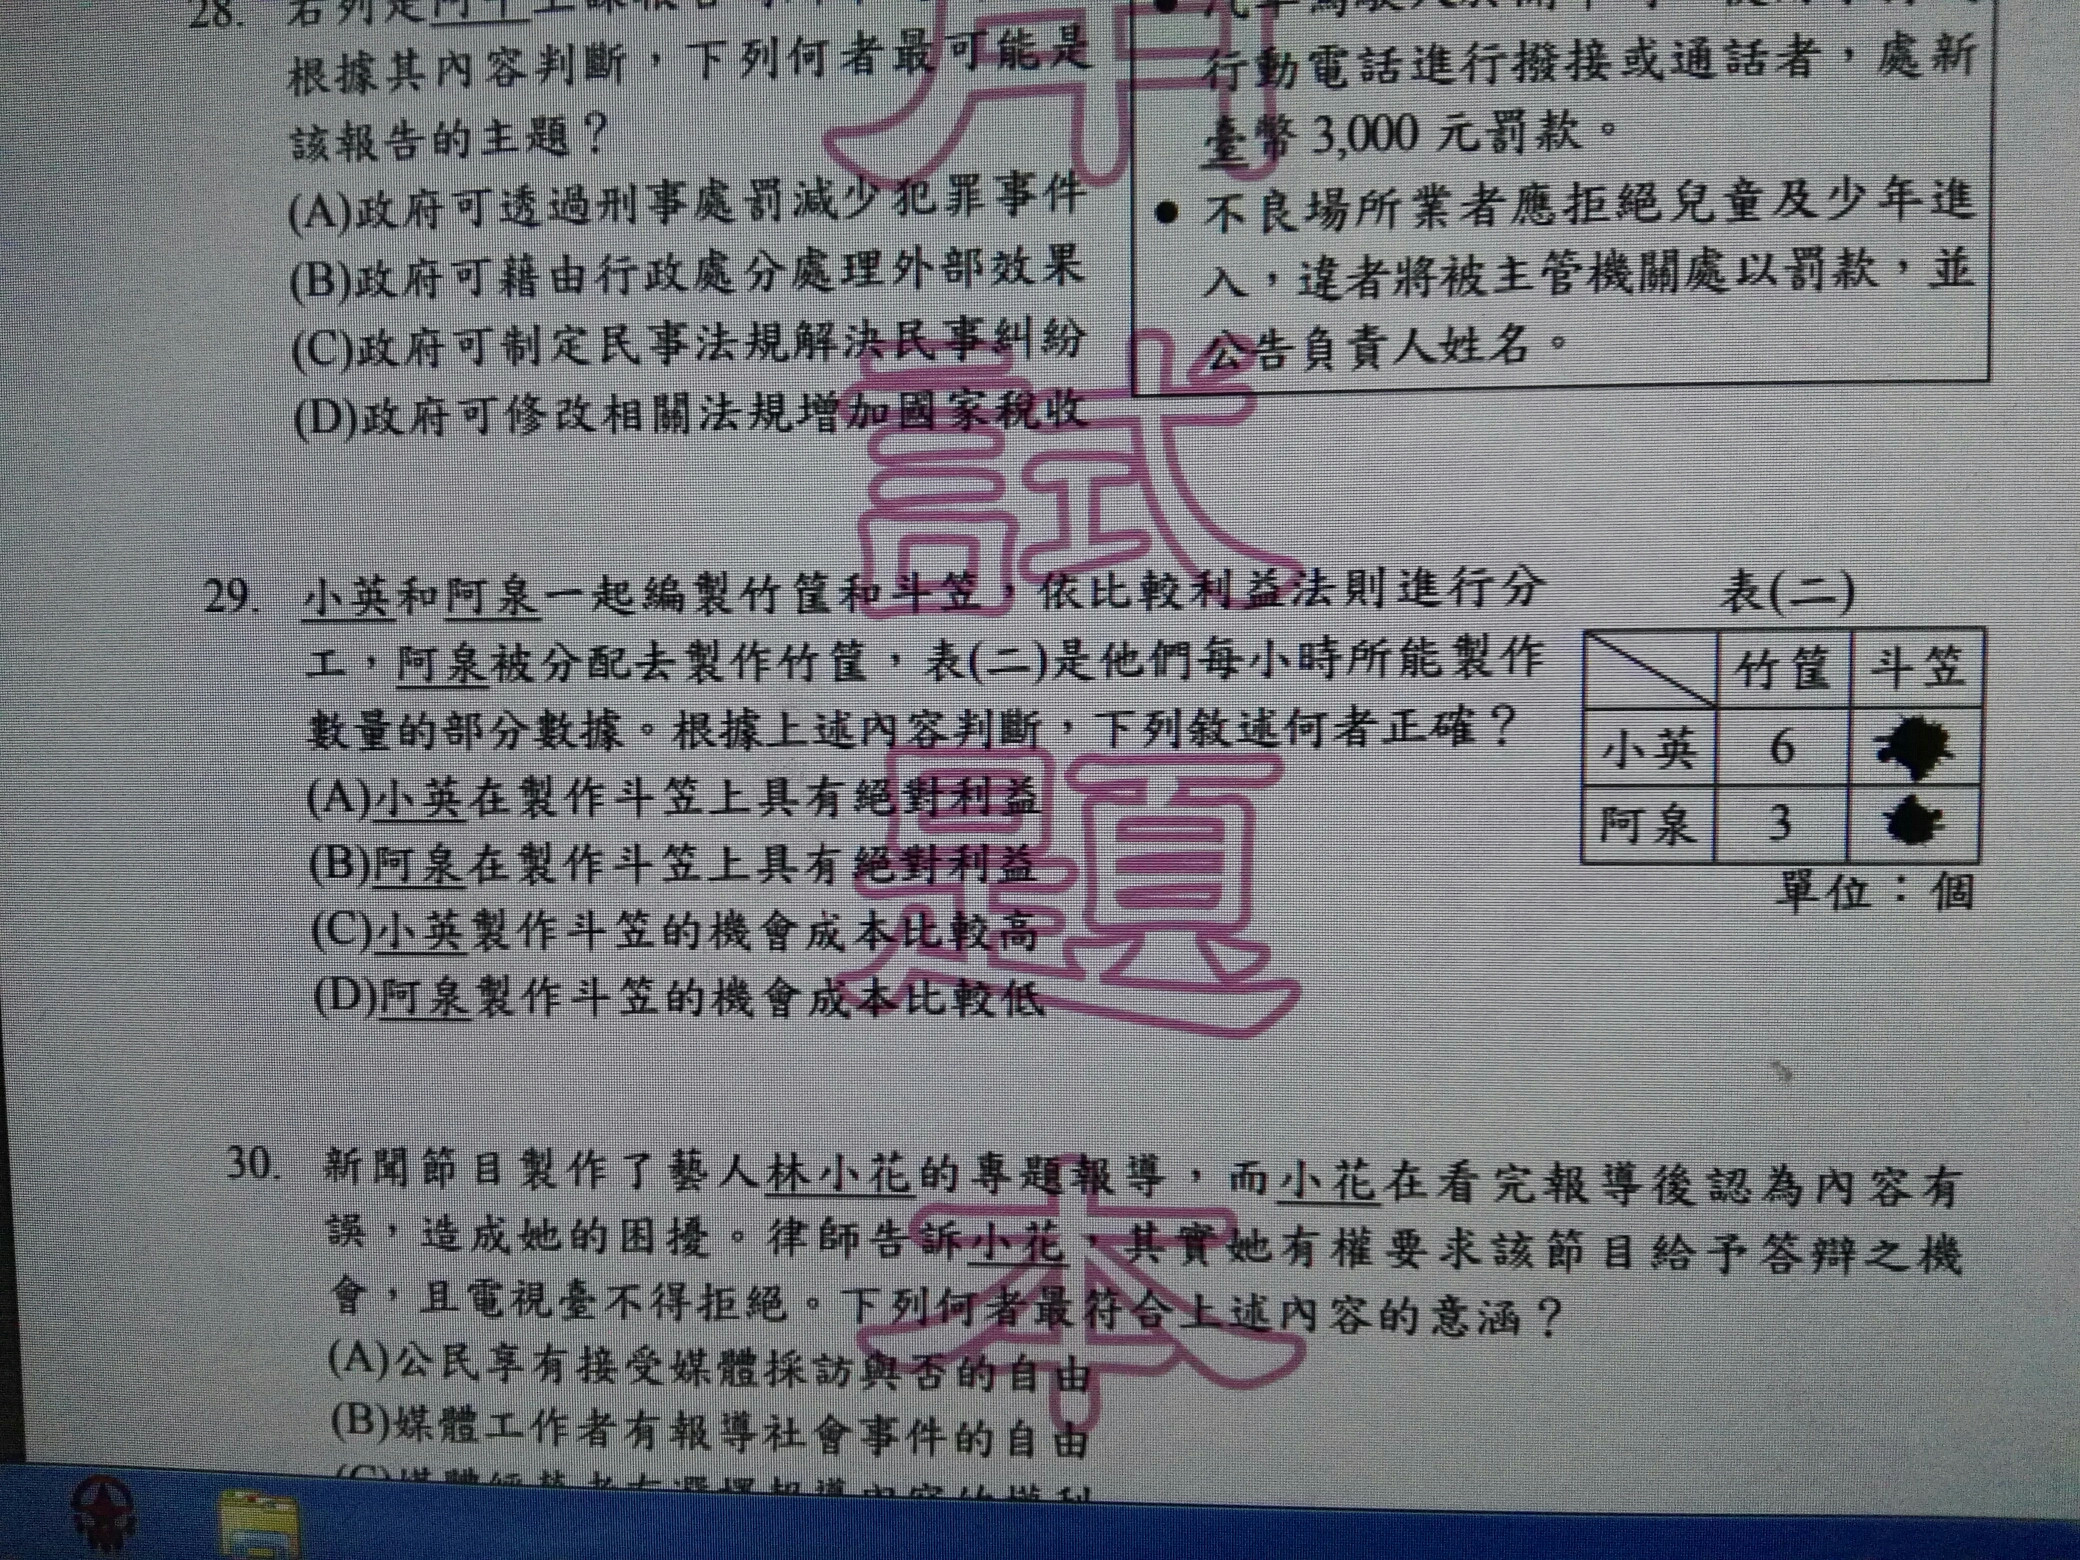 28.
根據其內容判斷，下列何者最可能是
該報告的主題？
(A)政府可透過刑事處罰減少犯罪事件
(B)政府可藉由行政處分處理外部效果
(C)政府可制定民事法規解決民事糾紛
(D)政府可修改相關法規增加國家稅收
行動電話進行撥接或通話者，處新
臺幣 3,000 元罰款。
● 不良場所業者應拒絕兒童及少年進
入，違者將被主管機關處以罰款，並
公告負責人姓名。
29. 小英和阿泉一起編製竹筐和斗笠，依比較利益法則進行分
工，阿泉被分配去製作竹筐，表(二)是他們每小時所能製作
數量的部分數據。根據上述內容判斷，下列敘述何者正確？
(A)小英在製作斗笠上具有絕對利益
(B)阿泉在製作斗笠上具有絕對利益
(C)小英製作斗笠的機會成本比較高
(D)阿泉製作斗笠的機會成本比較低
表(二)
竹筐 斗笠
小英 6
阿泉 3
單位：個
30. 新聞節目製作了藝人林小花的專題報導，而小花在看完報導後認為內容有
誤，造成她的困擾。律師告訴小花，其實她有權要求該節目給予答辯之機
會，且電視臺不得拒絕。下列何者最符合上述內容的意涵？
(A)公民享有接受媒體採訪與否的自由
(B)媒體工作者有報導社會事件的自由
試
題
本